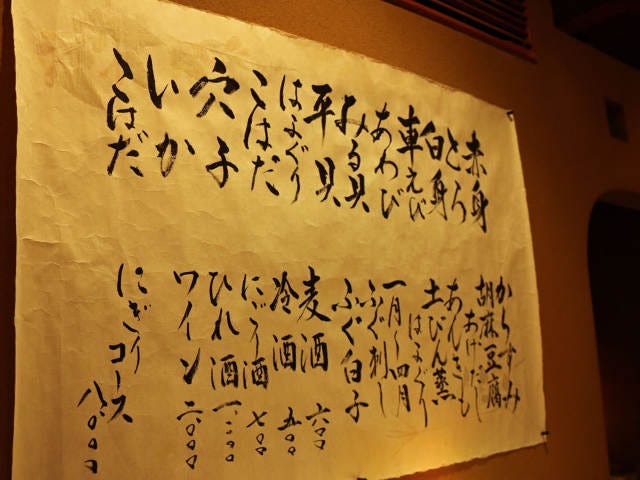 赤身
とろ
白身
車えび
あわび
みる貝
平貝
はまぐり
こはだ
穴子
いか
こはだ
からすみ
胡麻豆腐
あげだし
あんきも
土びん蒸
はまぐり
一月〜四月
ふぐ刺し
ふぐ白子
麦酒 六〇〇
冷酒 五〇〇
にごり酒 七〇〇
ひれ酒 一、〇〇〇
ワイン 二、〇〇〇
にぎりコース 八、〇〇〇